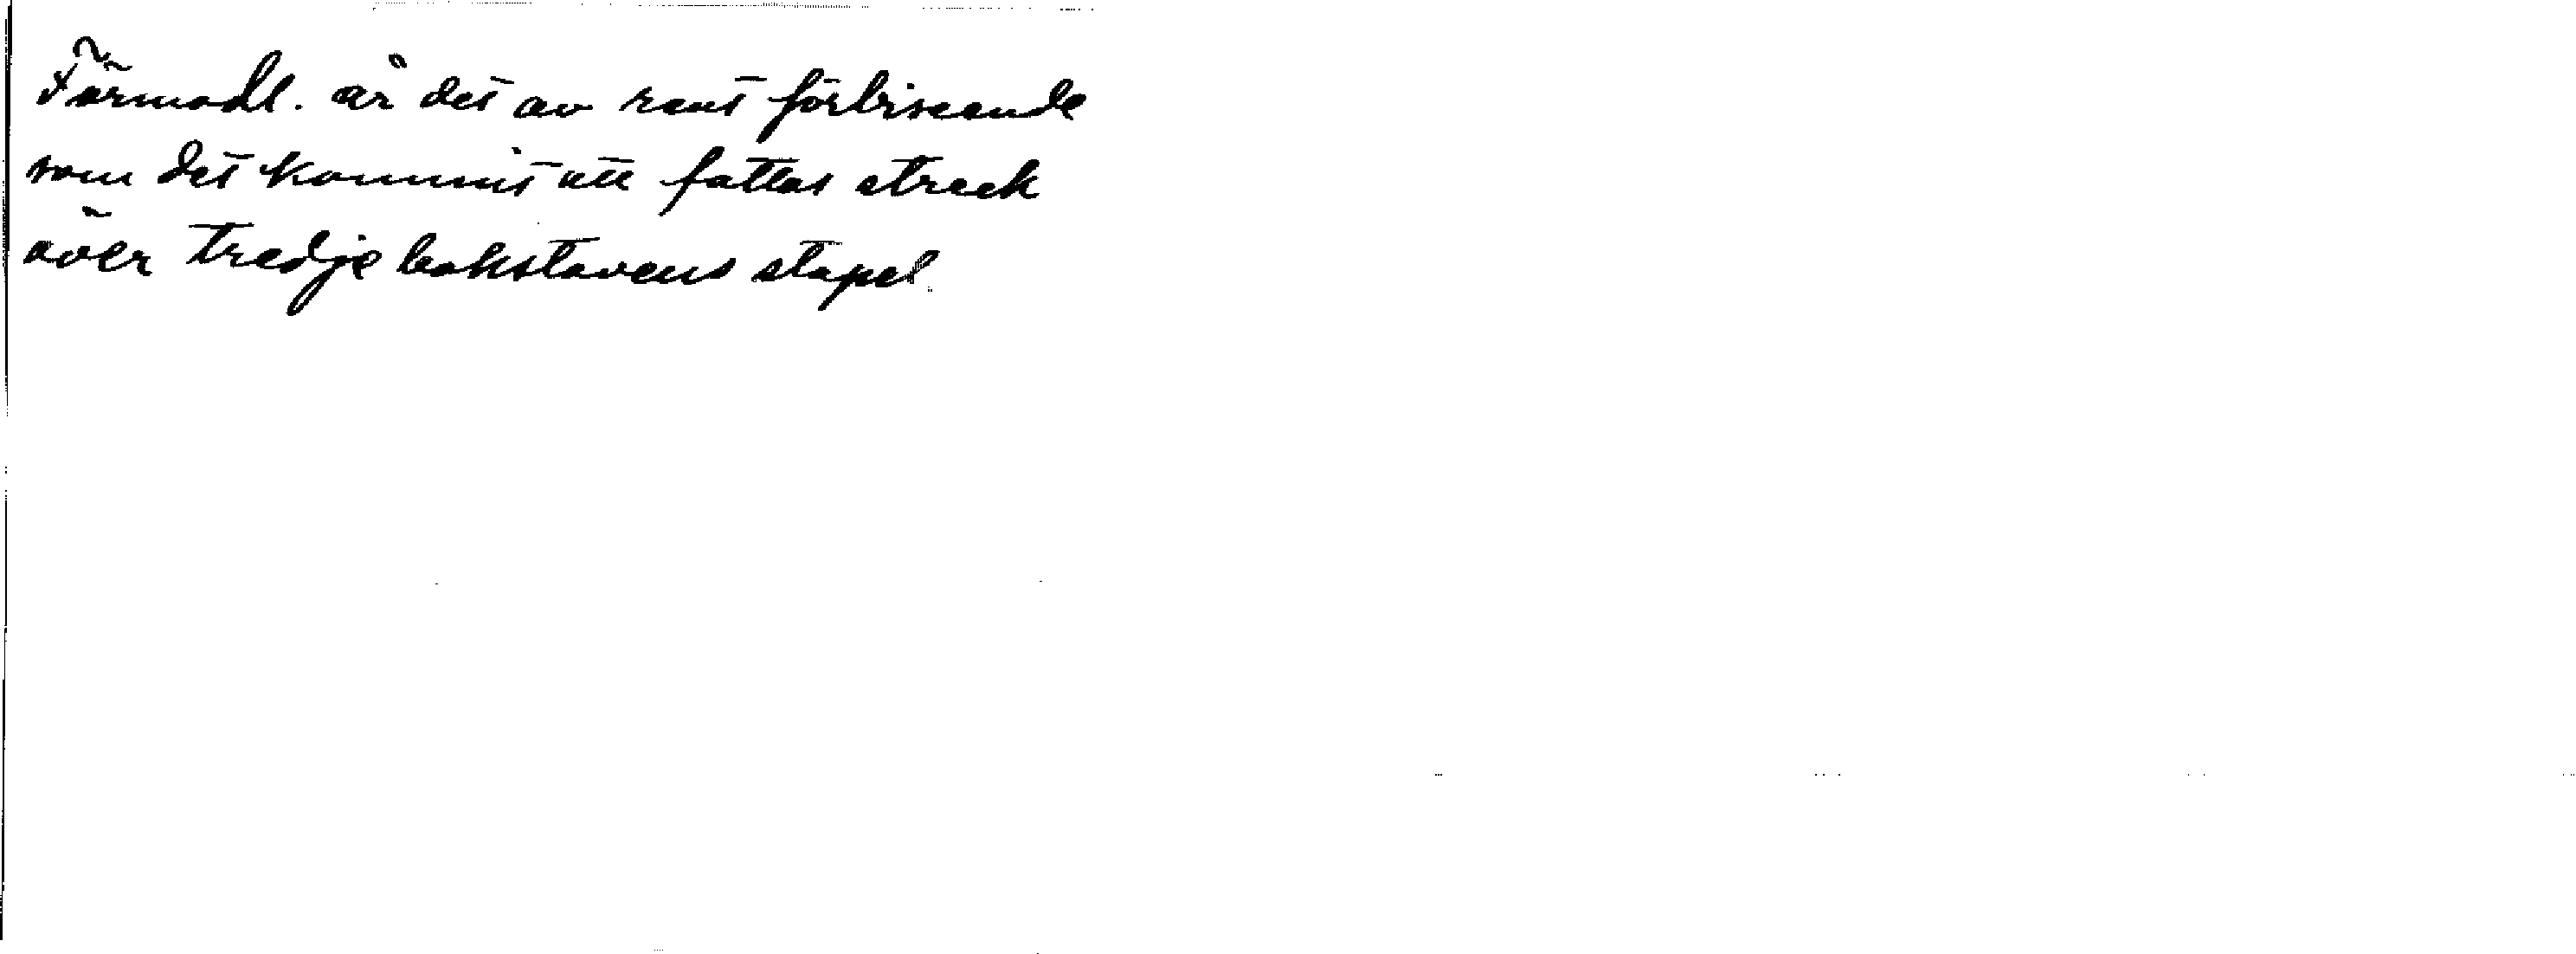 Förmodl. är det av rent förbiseende
som det kommit att fattas streck
över tredje bokstavens stapel.